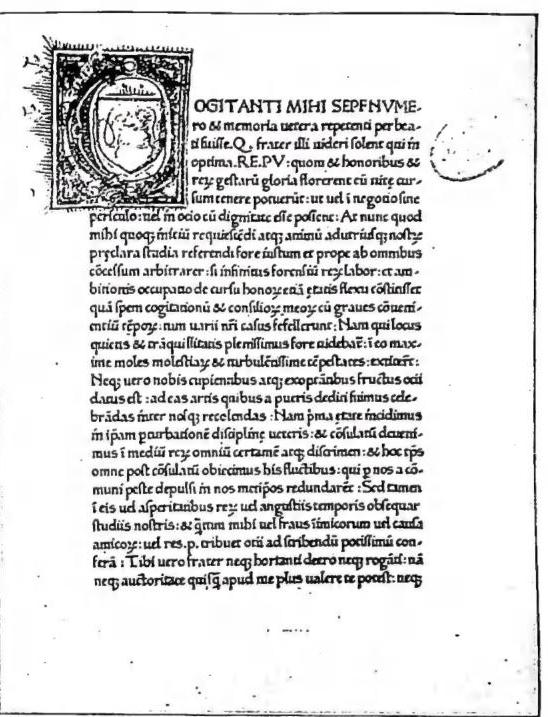 COGITANTI MIHI SEPENVME-
ro & memoria uetera repetenti per bea-
ti fuisse. Q, frater illi uideri solent qui in
optima. RE.PV: quom & honoribus &
reꝝ gestaꝝ gloria florerent cū uite cur-
sum tenere potuerūt: ut uel ī negocio sine
periculo: uel in ocio cū dignitate esse possent: Ac nunc quod
mihi quoqꝫ iniciū requiescēdi atqꝫ animū ad utriusqꝫ nostꝝ
pręclara studia referendi fore iustum et prope ab omnibus
cōcessum arbitrarer: si infinitus forensiū reꝝ labor: et am-
bitionis occupatio de cursu honoꝝ etiā ętatis flexu cōstitisset
quā spem cogitationū & consilioꝝ meoꝝ cū graues cōueni-
entiū tēpoꝝ: tum uarii nr̄i casus fefellerunt: Nam qui locus
quietis & trāquillitatis plenissimus fore uidebat̄: ī eo max-
ime moles molestiaꝝ & turbulētissime tēpestates: extiterūt:
Neqꝫ uero nobis cupientibus atqꝫ exoptātibus fructus ocii
datus est: ad eas artis quibus a pueris dediti fuimus cele-
brādas inter nosqꝫ recolendas: Nam pͥma etate incidimus
in ipām pturbationē discipline ueteris: & cōsulatū deueni-
mus ī mediū reꝝ omniū certamē atqꝫ discrimen: & hoc tp̄s
omne post cōsulatū obiecimus his fluctibus: qui ꝑ nos a cō-
muni peste depulsi in nos metipōs redundarēt: Sed tamen
ī eis uel asperitatibus reꝝ uel angustiis temporis obsequar
studiis nostris: & q̄ntum mihi uel fraus īimicorum uel causa
amicoꝝ: uel res.p. tribuet otii ad scribendū potissimū con-
ferā: Tibi uero frater neqꝫ hortanti deero neqꝫ rogāti: nā
neqꝫ auctoritate quisq̄ apud me plus ualere te potest: neqꝫ